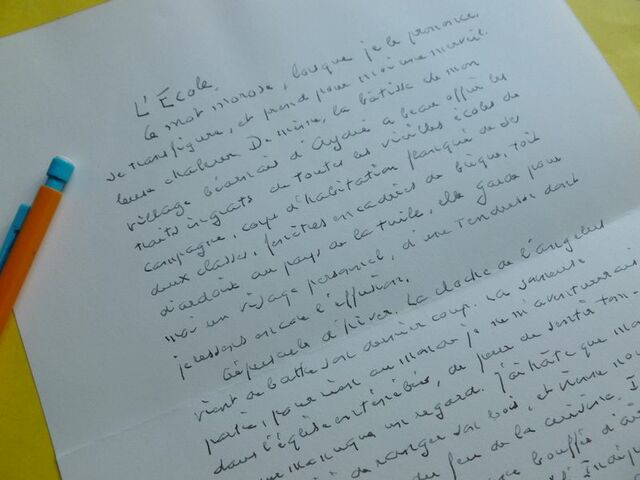 L'École.
Ce mot morose, lorsque je le prononce,
se transfigure, et prend pour moi une merveil-
leuse chaleur. De même, la bâtisse de mon
village béarnais d'Aydie a beau offrir les
traits ingrats de toutes les vieilles écoles de
campagne, corps d'habitation flanqué de ses
deux classes, fenêtres encadrées de brique, toit
d'ardoise au pays de la tuile, elle garde pour
moi un visage personnel, d'une tendresse dont
je ressens encore l'effusion.
Crépuscule d'hiver. La cloche de l'angélus
vient de battre son dernier coup. La sonneuse
partie, pour rien au monde je ne m'aventurerais
dans l'église enténébrée, de peur de sentir tom-
un regard. J'ai hâte que mo
de ranger son bois, et vienne
du feu de la cuisine.
bouffée d'a